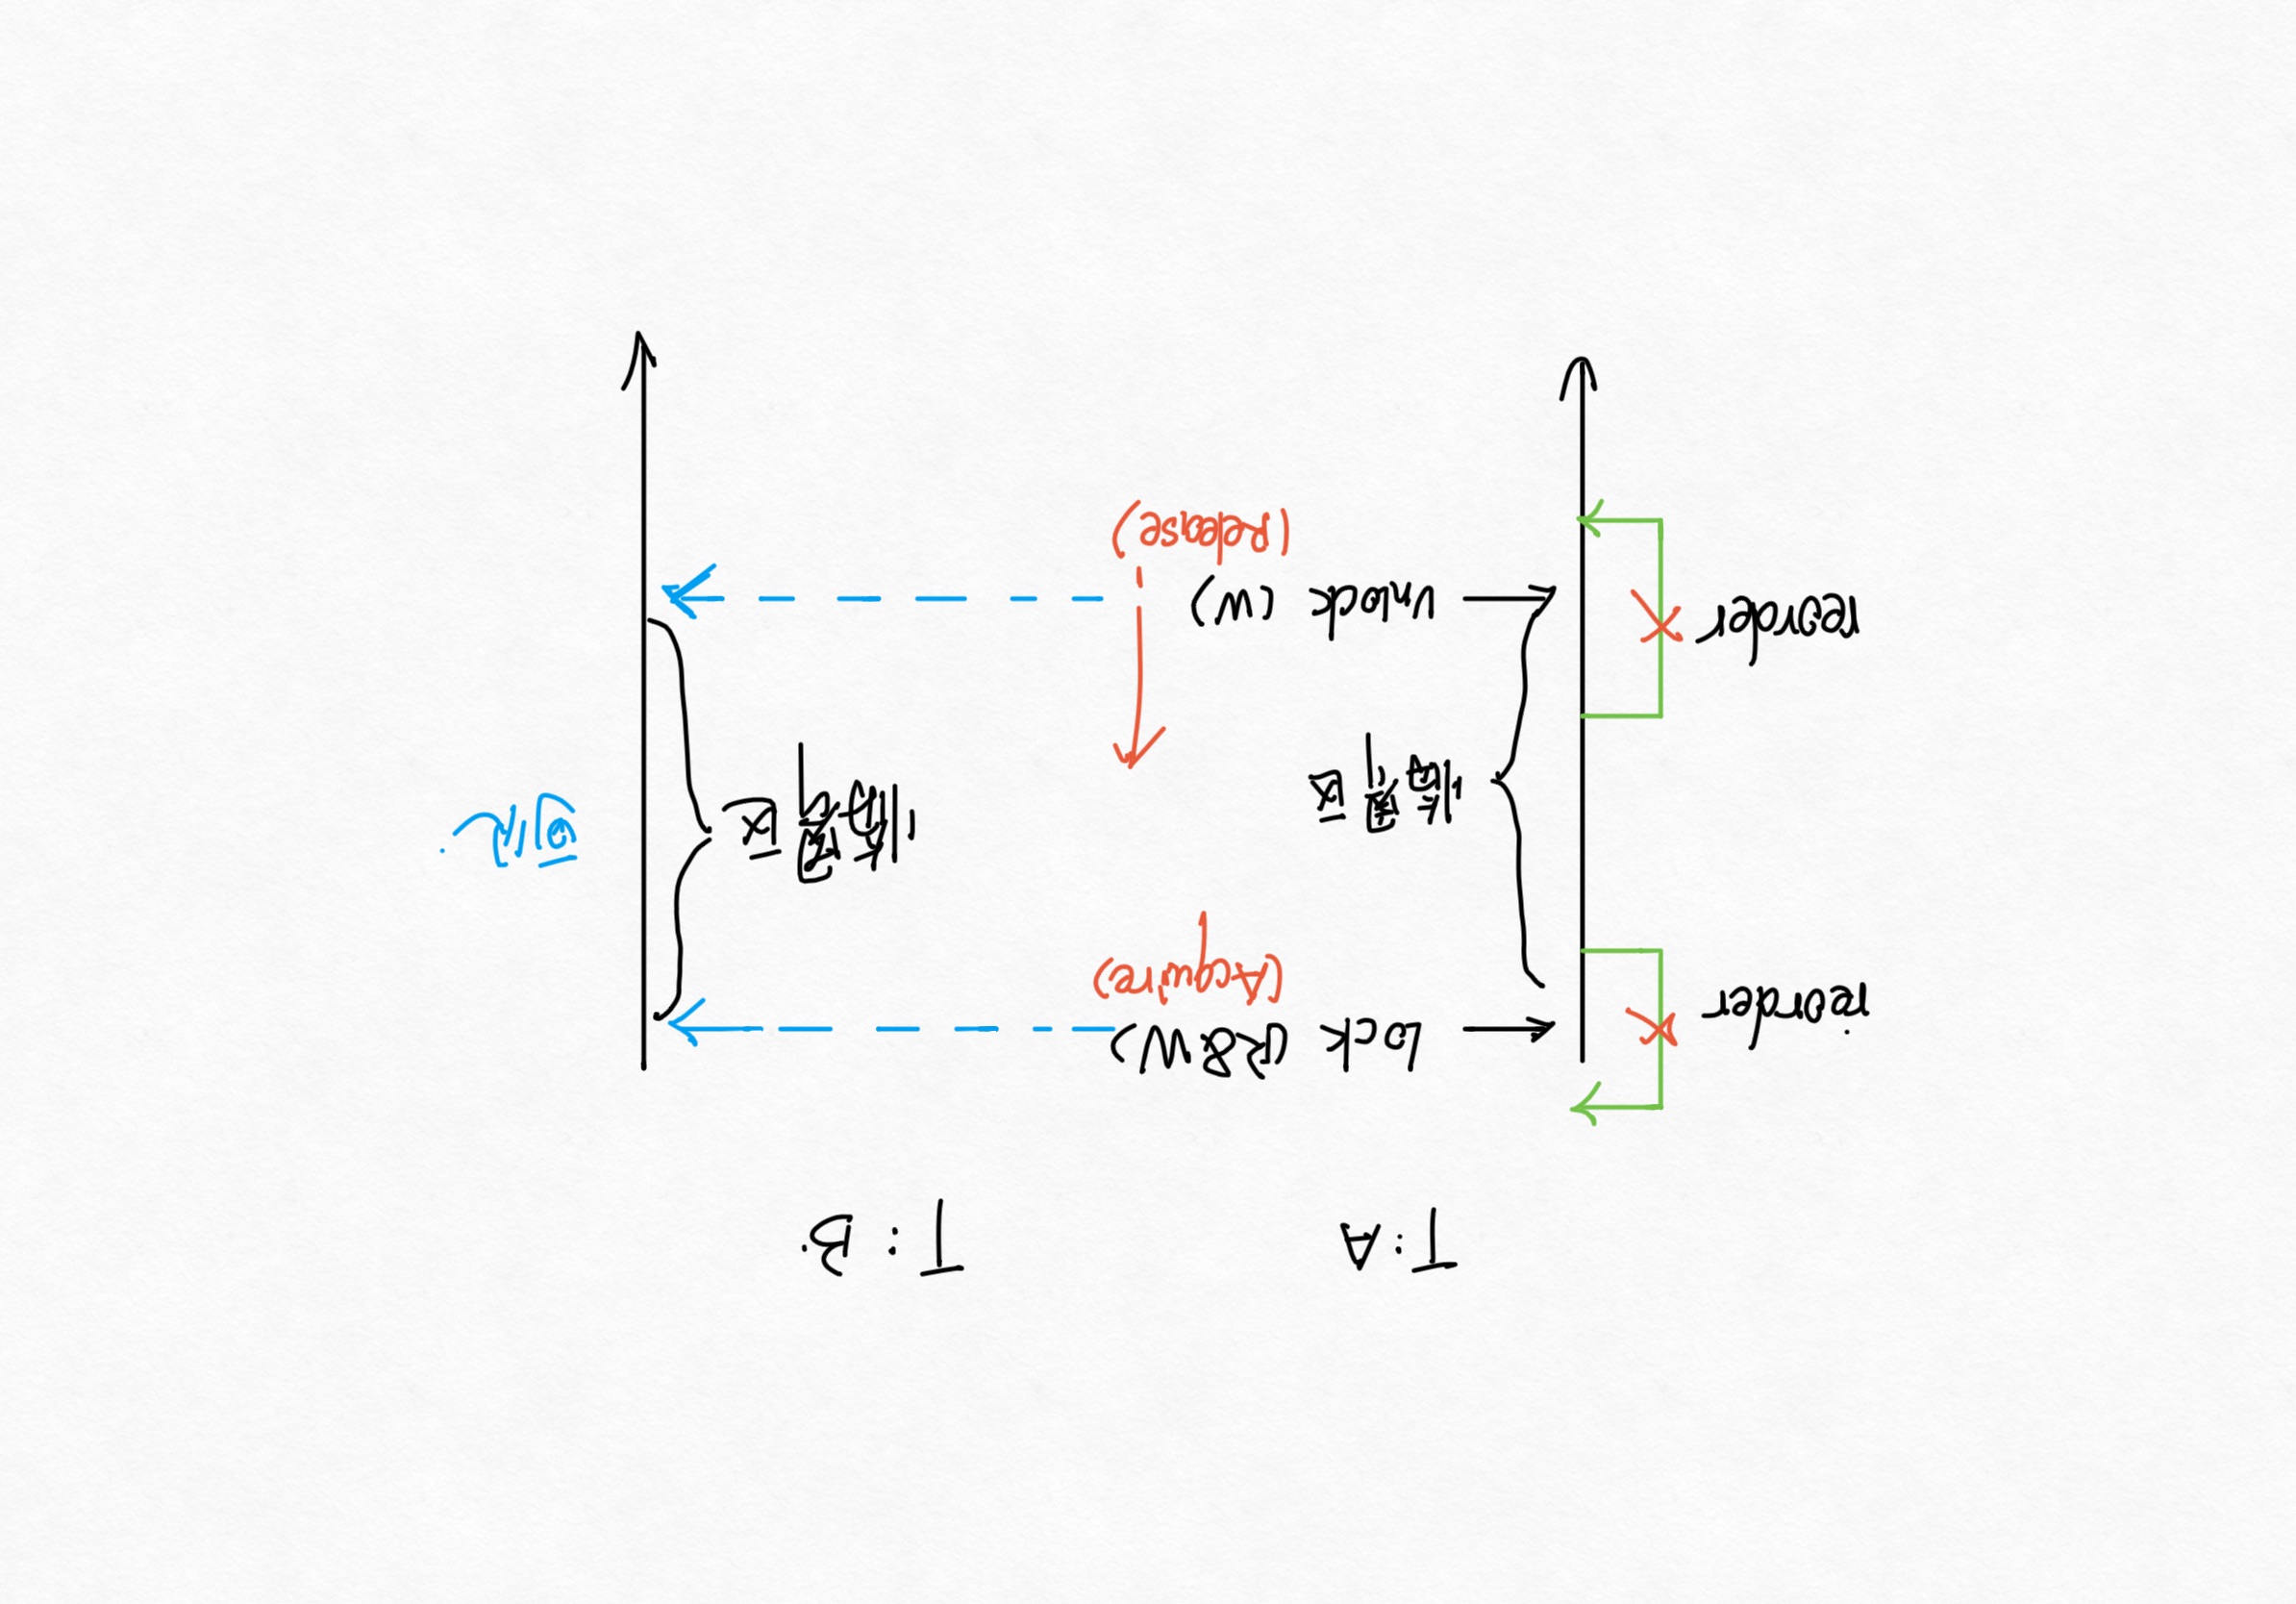 T: A
T: B.
reorder
Lock (R&W)
(Acquire)
临界区
临界区
可见.
reorder
unlock (W)
(Release)